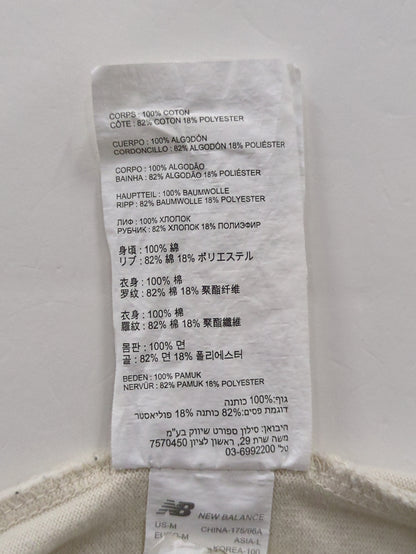 CORPS : 100% COTON
CÔTE : 82% COTON 18% POLYESTER
CUERPO : 100% ALGODÓN
CORDONCILLO : 82% ALGODÓN 18% POLIÉSTER
CORPO : 100% ALGODÃO
BAINHA : 82% ALGODÃO 18% POLIÉSTER
HAUPTTEIL : 100% BAUMWOLLE
RIPP : 82% BAUMWOLLE 18% POLYESTER
ЛИФ : 100% ХЛОПОК
РУБЧИК : 82% ХЛОПОК 18% ПОЛИЭФИР
身頃 : 100% 綿
リブ : 82% 綿 18% ポリエステル
衣身 : 100% 棉
罗纹 : 82% 棉 18% 聚酯纤维
衣身 : 100% 棉
羅紋 : 82% 棉 18% 聚酯纖維
몸판 : 100% 면
골 : 82% 면 18% 폴리에스터
BEDEN : 100% PAMUK
NERVÜR : 82% PAMUK 18% POLYESTER
גוף: 100% כותנה
דוגמת פסים: 82% כותנה 18% פוליאסטר
היבואן: סילון ספורט שיווק בע"מ
משה שרת 29, ראשון לציון 7570450
טל' 03-6992200
NB NEW BALANCE
US-M CHINA-175/96A
EURO-M ASIA-L
KOREA-100